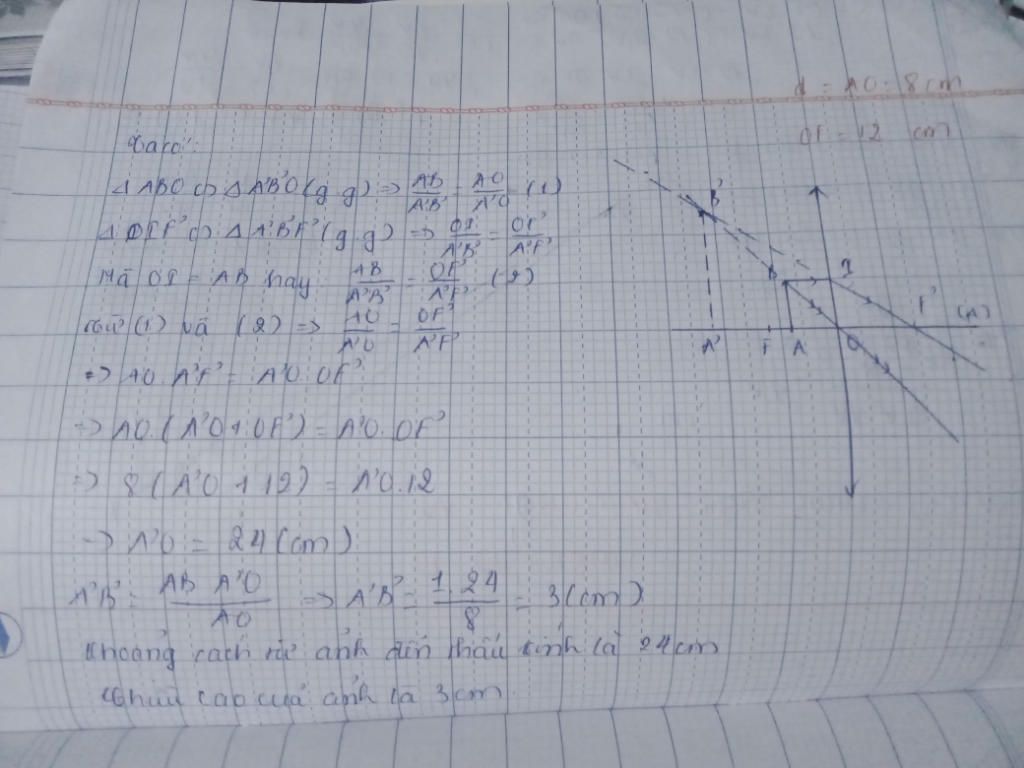 d = AO = 8cm
OF = 12 cm
Ta có:
Δ ABO ∽ Δ A'B'O (g.g) => AB/A'B' = AO/A'O (1)
Δ OIF' ∽ Δ A'B'F' (g.g) => OI/A'B' = OF'/A'F'
Mà OI = AB hay AB/A'B' = OF'/A'F' (2)
Từ (1) và (2) => AO/A'O = OF'/A'F'
=> AO. A'F' = A'O. OF'
=> AO. (A'O + OF') = A'O. OF'
=> 8 (A'O + 12) = A'O. 12
=> A'O = 24 (cm)
A'B' = AB A'O/AO => A'B' = 1.24/8 = 3 (cm)
Khoảng cách từ ảnh đến thấu kính là 24cm
Chiều cao của ảnh là 3cm.
B'
B
I
F'
(Δ)
A'
F
A
O